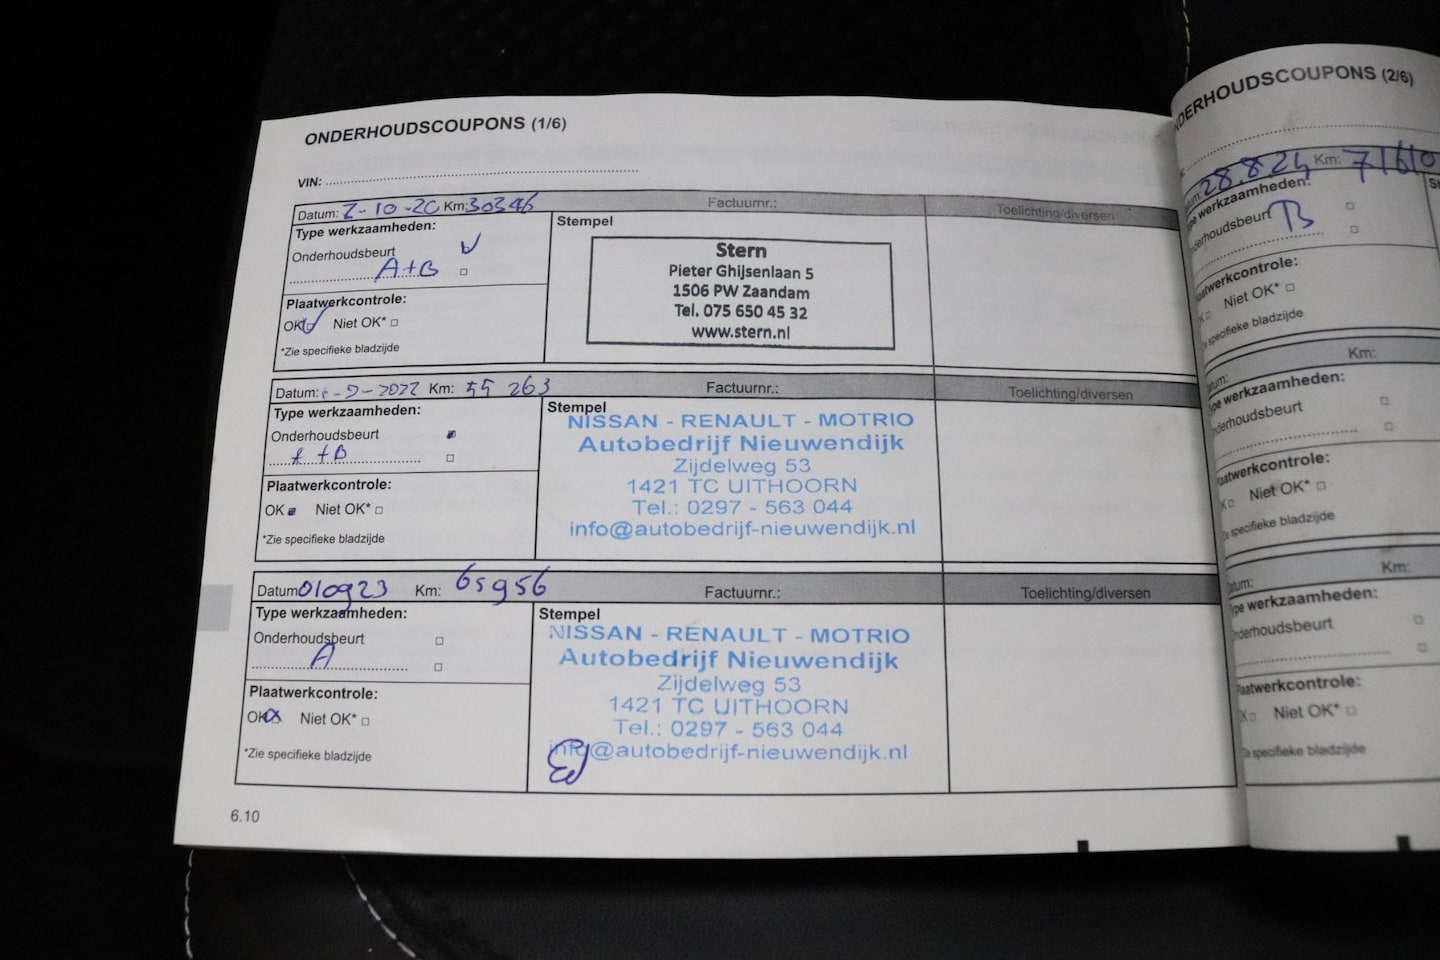 ONDERHOUDSCOUPONS (1/6)
VIN:
Datum: 2-10-20 Km: 30346 Factuurnr.: Toelichting/diversen
Type werkzaamheden:
Stempel
Onderhoudsbeurt
A+B
Plaatwerkcontrole:
OK Niet OK*
*Zie specifieke bladzijde
Stern
Pieter Ghijsenlaan 5
1506 PW Zaandam
Tel. 075 650 45 32
www.stern.nl
Datum: -9-2022 Km: 55 263 Factuurnr.: Toelichting/diversen
Type werkzaamheden:
Stempel
Onderhoudsbeurt
+B
Plaatwerkcontrole:
OK Niet OK*
*Zie specifieke bladzijde
NISSAN - RENAULT - MOTRIO
Autobedrijf Nieuwendijk
Zijdelweg 53
1421 TC UITHOORN
Tel.: 0297 - 563 044
info@autobedrijf-nieuwendijk.nl
Datum 010923 Km: 65956 Factuurnr.: Toelichting/diversen
Type werkzaamheden:
Stempel
Onderhoudsbeurt
A
Plaatwerkcontrole:
OK Niet OK*
*Zie specifieke bladzijde
NISSAN - RENAULT - MOTRIO
Autobedrijf Nieuwendijk
Zijdelweg 53
1421 TC UITHOORN
Tel.: 0297 - 563 044
info@autobedrijf-nieuwendijk.nl
6.10
NDERHOUDSCOUPONS (2/6)
tum: 28.8.24 Km: 71610
ype werkzaamheden:
St
nderhoudsbeurt B
laatwerkcontrole:
K Niet OK*
e specifieke bladzijde
atum: Km:
ype werkzaamheden:
nderhoudsbeurt
laatwerkcontrole:
K Niet OK*
e specifieke bladzijde
atum: Km:
ype werkzaamheden:
nderhoudsbeurt
laatwerkcontrole:
K Niet OK*
e specifieke bladzijde